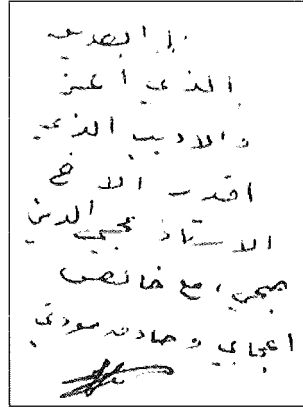 إلى الصديق
الذي أعتز
والاديب الذي
اقدر الاخ
الاستاذ محيي الدين
صبحي، مع خالص
اعجابي وصادق مودتي